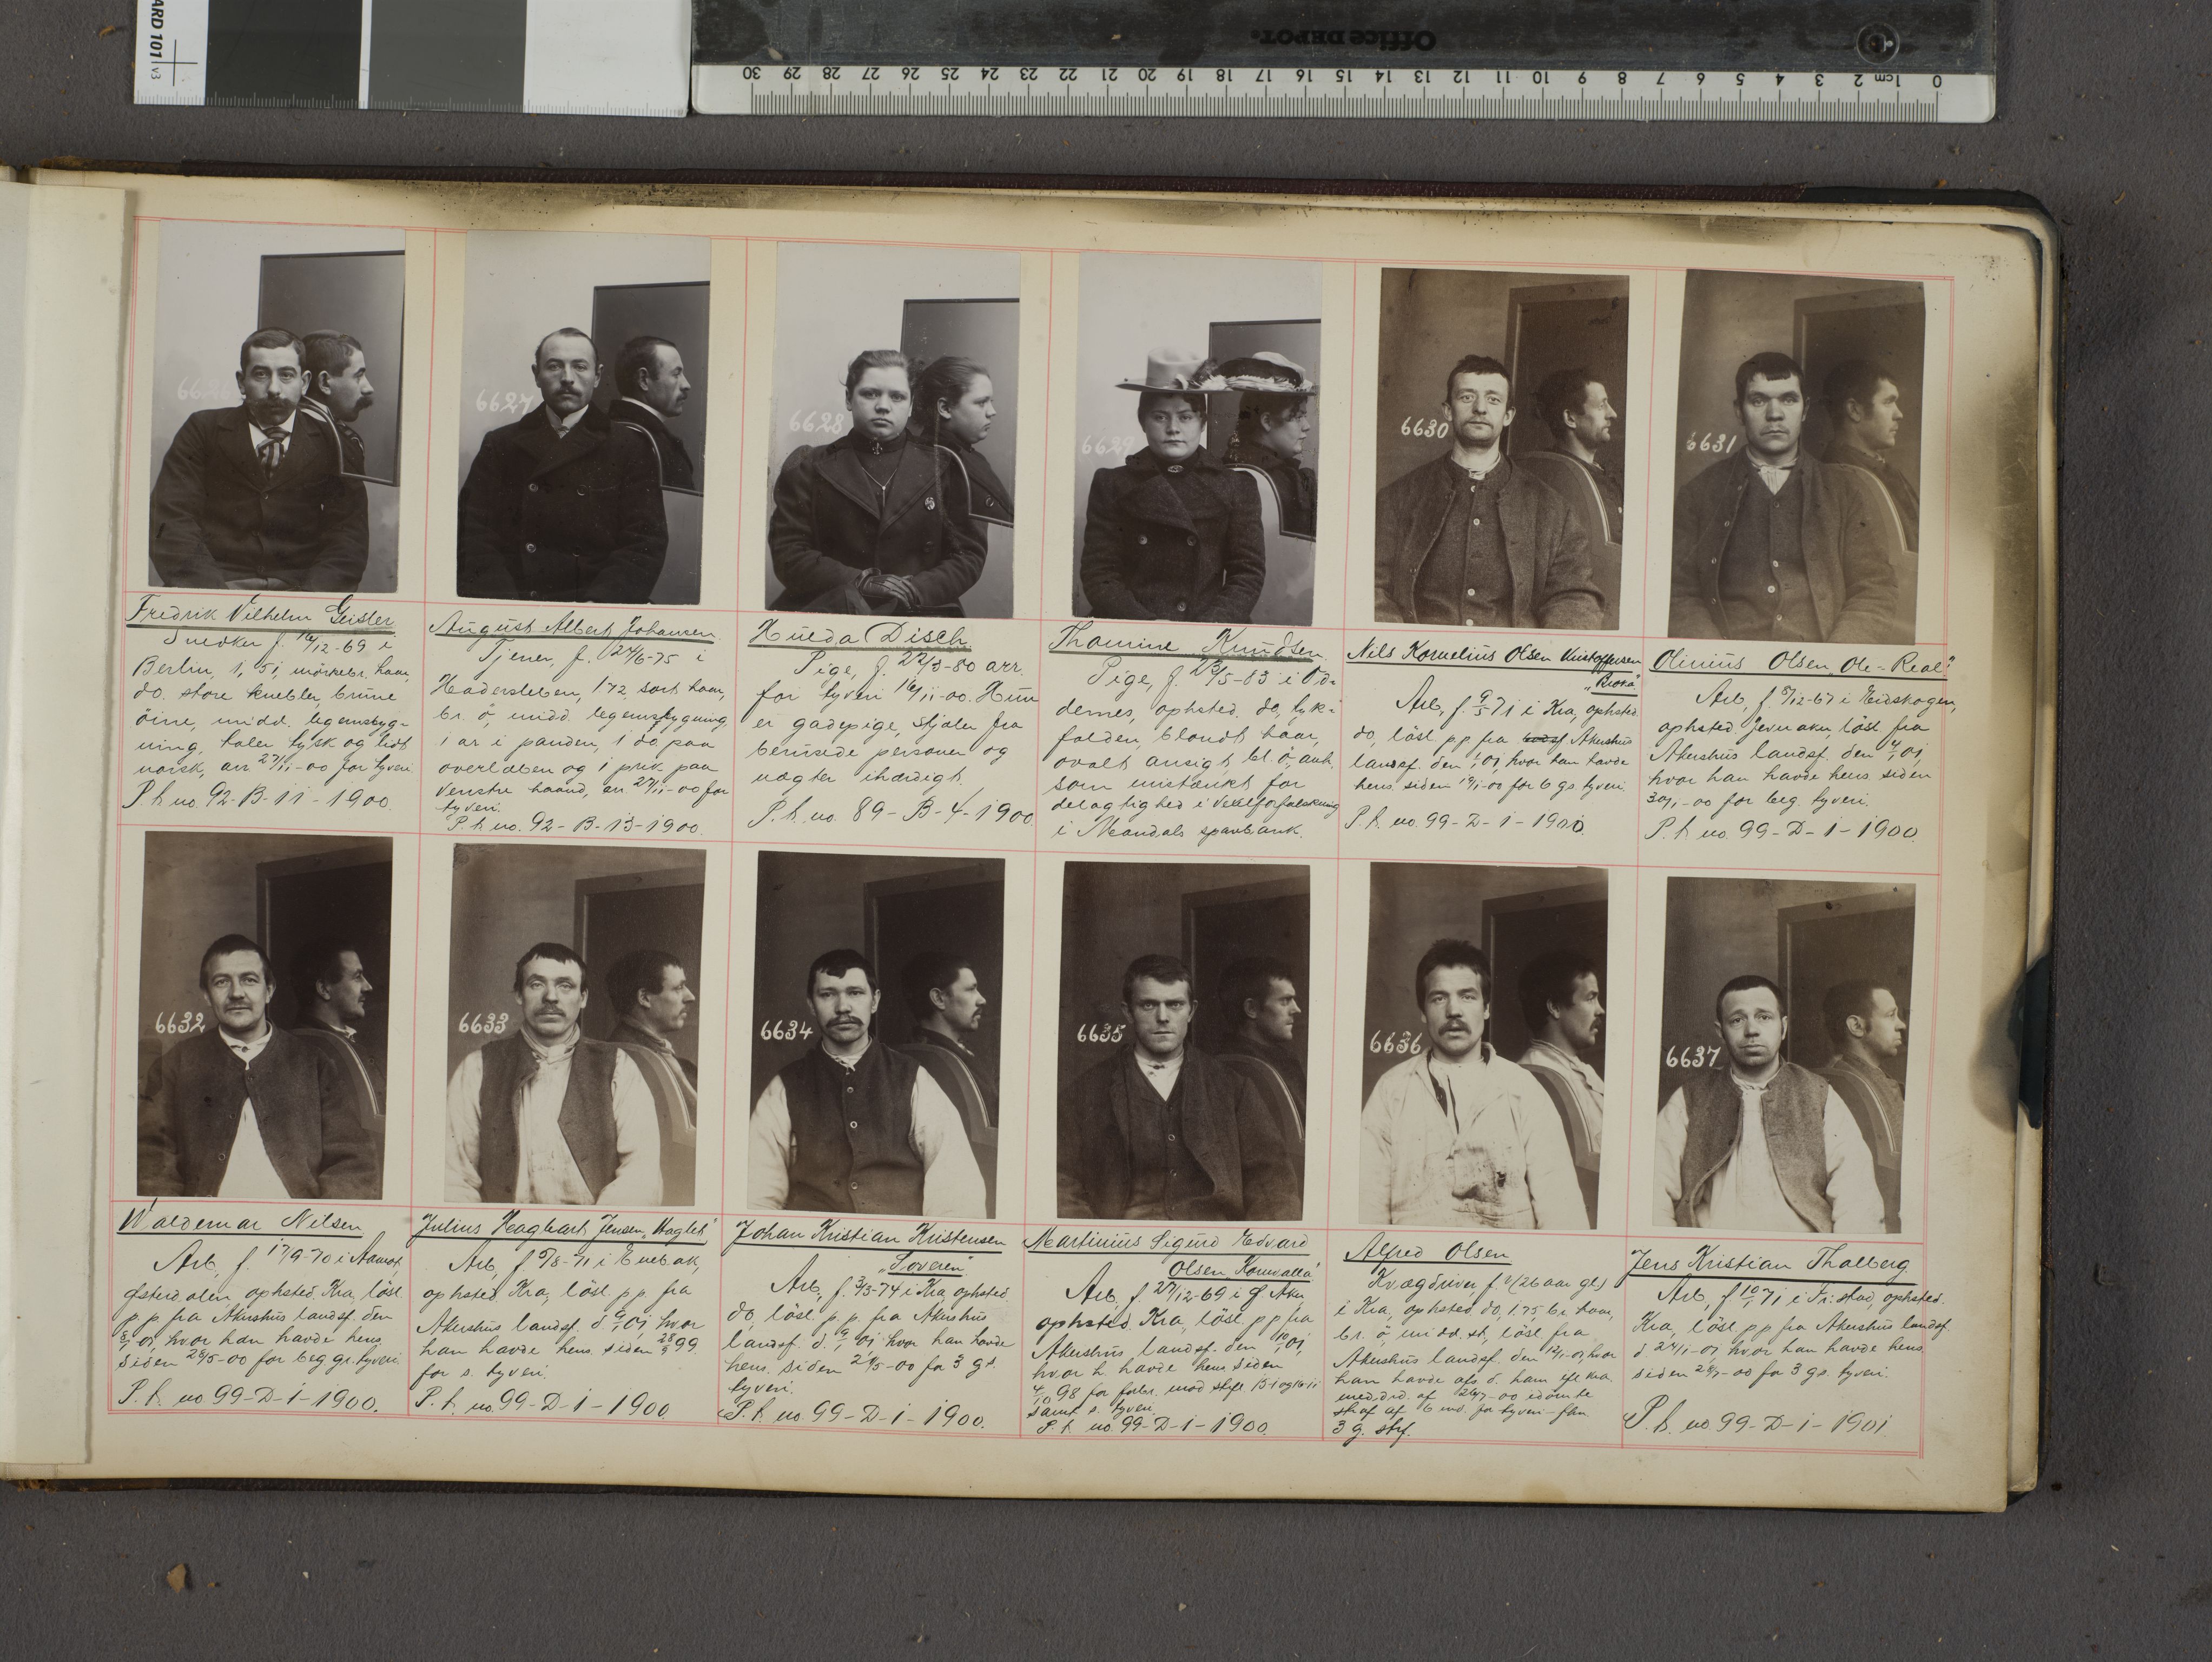 ARD 101 v3
Office DEPOT
0 1 cm 2 3 4 5 6 7 8 9 10 11 12 13 14 15 16 17 18 19 20 21 22 23 24 25 26 27 28 29 30
6626
6627
6628
6629
6630
6631
Fredrik Vilhelm Geisler
Snedker f. 16/12-69 i
Berlin, 1,51, mørkebr. haar,
do. store knebler, brune
öine, midd. legemsbyg-
ning, taler tysk og lidt
norsk, arr 27/11-00 for tyveri.
P. h. no. 92-B-11-1900.
August Albert Johansen.
Tjener, f. 24/6-75 i
Hadersleben, 172 sort haar,
br. ö, midd. legemsbygning,
1 ar i panden, 1 do. paa
overlæben og 1 prik paa
venstre haand, arr. 27/11-00 for
tyveri.
P. h. no. 92-B-13-1900.
Hulda Disch
Pige, f. 22/3-80 arr.
for tyveri 16/11-00. Hun
er gadepige, stjæler fra
berusede personer og
nægter ihærdigt.
P. h. no. 89-B-4-1900
Thomine Knudsen.
Pige, f. 23/5-83 i Od-
dernes, ophsted. do, tyk i
falden, blondt haar,
ovalt ansigt, bl. ö, anh.
som mistænkt for
delagtighed i Vexelforfalskning
i Mandals sparebank.
Nils Kornelius Olsen Kristoffersen
Arb, f. 9/5 71 i Kra, ophsted.
do, lösl pp fra Akershus
landsf. den 1/1 01, hvor han havde
hens. siden 19/1-00 for 6 gs. tyveri.
P. h. no. 99-D-1-1900.
Olinius Olsen „Ole-Real"
Arb, f. 5/12-67 i Eidskogen,
ophsted Jevnaker, lösl. fra
Akershus landsf. den 4/1 01,
hvor han havde hens. siden
30/1-00 for beg. tyveri.
P. h. no. 99-D-1-1900.
6632
6633
6634
6635
6636
6637
Waldemar Nilsen
Arb, f. 17/9-70 i Aamot,
Østerdalen ophsted. Kra, lösl
p. p. fra Akershus landsf. den
8/1 01, hvor han havde hens.
siden 28/5-00 for beg gr. tyveri.
P. h. no 99-D-1-1900.
Julius Hagbart Jensen „Waglet"
Arb, f 5/8-71 i Enebak,
ophsted. Kra, lösl. pp. fra
Akershus landsf. d 9/1 01, hvor
han havde hens. siden 28/8 99
for s. tyveri.
P. h. no. 99-D-1-1900
Johan Kristian Kristensen
Arb, f. 3/3-74 i Kra, ophsted
do, lösl. p. p. fra Akershus
landsf. d. 9/1 01 hvor han havde
hens. siden 21/5-00 for 3 gs.
tyveri.
P. h. no 99-D-1-1900.
Martinius Sigurd Edvard
Olsen „Kornvalla"
Arb, f. 27/12-69 i Ø Aker
ophsted. Kra, lösl. pp fra
Akershus landsf. den 10/1 01,
hvor h. havde hens. siden
4/10 98 for forbr. mod strfl 15-1 og 16-11
samt s. tyveri.
P. h. no 99-D-1-1900.
Alfred Olsen
Kvægdriver, f. (26 aar gl)
i Kra, ophsted do, 1,75, br. haar,
br. ö, midd. st, lösl fra
Akershus landsf. den 12/1-01, hvor
han havde afs. d. ham efl. Kra.
med. drd. af 26/7-00 idömte
straf af 6 md. for tyveri - fln.
3 g. strf.
Jens Kristian Thalberg.
Arb, f. 10/1 71 i Fr:stad, ophsted.
Kra, lösl pp fra Akershus landsf.
d 24/1-01, hvor han havde hens.
siden 28/7-00 for 3 gs. tyveri.
P. h. no. 99-D-1-1901.